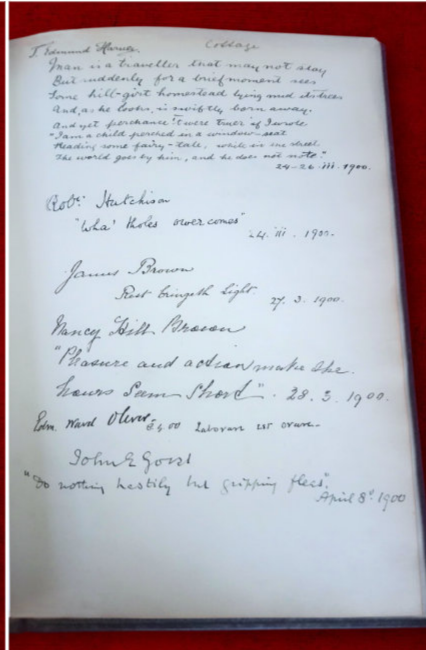 T. Edmund Harvey. Cottage
Man is a traveller that may not stay
But suddenly for a brief moment sees
Some hill-girt homestead lying mid its trees
And, as he looks, is swiftly born away.
And yet perchance 'twere truer if I wrote
"I am a child perched in a window-seat
Reading some fairy-tale, while in the street
The world goes by him, and he does not note."
24-26.iii.1900.
Robt. Hutchison
"Wha' tholes overcomes"
24.iii.1900.
James Brown
Rest bringeth light 27.3.1900.
Nancy Hill Brown
"Pleasure and action make the
hours seem short". 28.3.1900.
Edm. Ward Oliver. 3.4.00 Laborare est orare.
John E Gorst
"Do nothing hastily but gripping fleas".
April 8th 1900